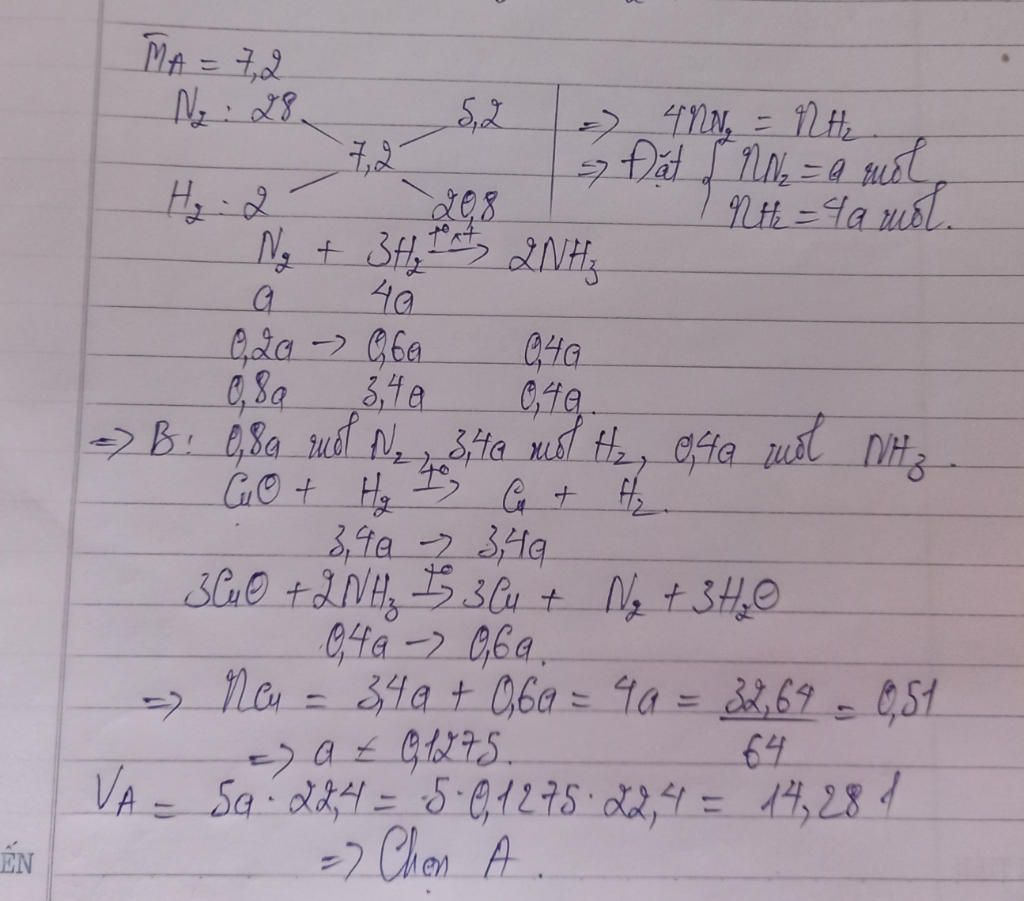 M̄A = 7,2
N₂ : 28 5,2
7,2
H₂ : 2 20,8
=> 4nN₂ = nH₂.
=> Đặt { nN₂ = a mol
nH₂ = 4a mol.
N₂ + 3H₂ t°,xt→ 2NH₃
a 4a
0,2a → 0,6a 0,4a
0,8a 3,4a 0,4a.
=> B: 0,8a mol N₂, 3,4a mol H₂, 0,4a mol NH₃.
CuO + H₂ t°→ Cu + H₂
3,4a → 3,4a
3CuO + 2NH₃ t°→ 3Cu + N₂ + 3H₂O
0,4a → 0,6a.
=> nCu = 3,4a + 0,6a = 4a = 32,64/64 = 0,51
=> a = 0,1275.
VA = 5a · 22,4 = 5·0,1275·22,4 = 14,28 l
=> Chọn A.
ẾN